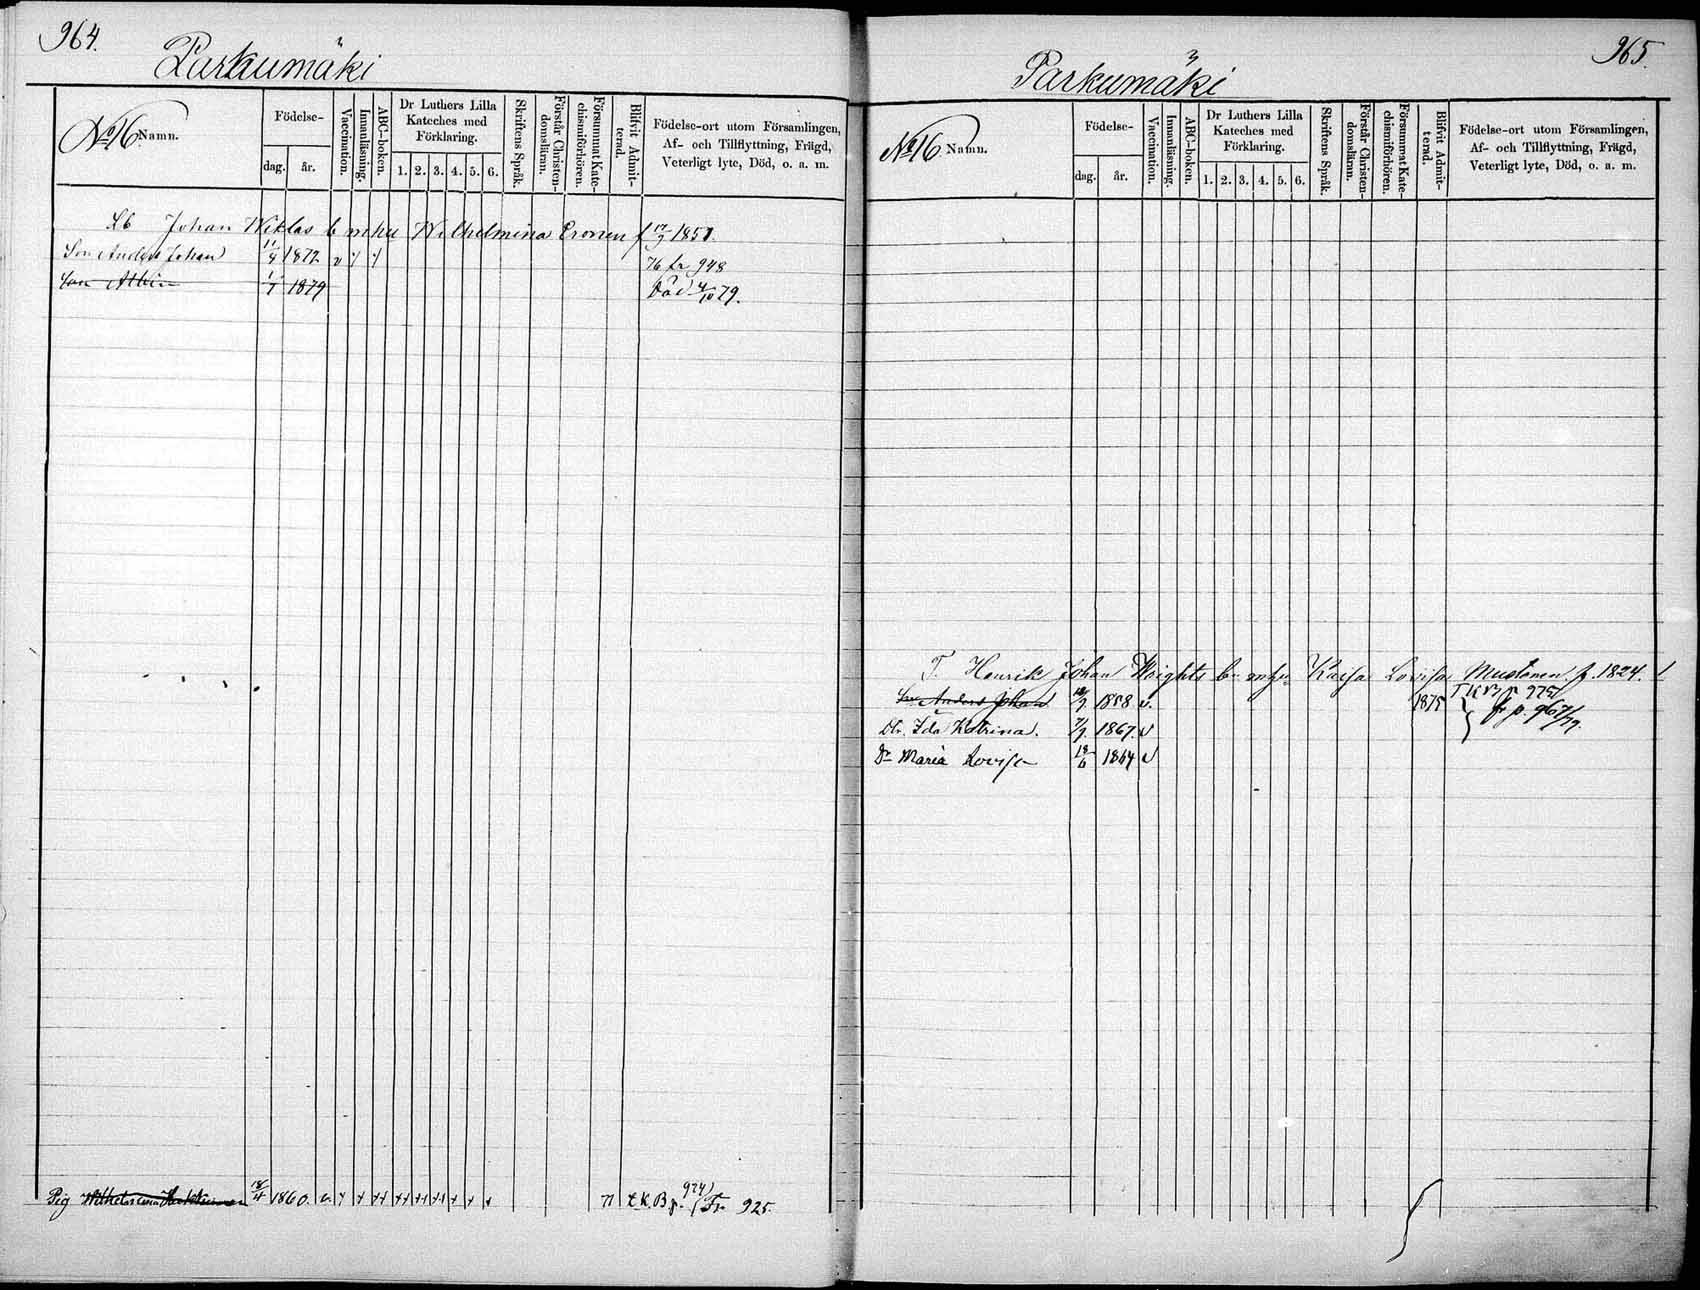 964.
Parkumäki
No 16 Namn.
Födelse-
dag. år.
Vaccination.
Innanläsning.
ABC-boken.
Dr Luthers Lilla
Kateches med
Förklaring.
1. 2. 3. 4. 5. 6.
Skriftens Språk.
Förstår Christen-
domsläran.
Försummat Kate-
chismiförhören.
Blifvit Admit-
terad.
Födelse-ort utom Församlingen,
Af- och Tillflyttning, Frägd,
Veterligt lyte, Död, o. a. m.
Johan Niklas b m hu Wilhelmina Eronen f 1851.
Son Anders Johan 11/4 1872 v 76 fr 948
Son Albin 1/7 1879 Död 4/10 79.
Pig Wilhelmina 18/4 1860. v. + + ++ ++ ++ ++ + + + 71 t. K. B. p. 924) Fr. 925.
965.
Parkumäki
No 16 Namn.
Födelse-
dag. år.
Vaccination.
Innanläsning.
ABC-boken.
Dr Luthers Lilla
Kateches med
Förklaring.
1. 2. 3. 4. 5. 6.
Skriftens Språk.
Förstår Christen-
domsläran.
Försummat Kate-
chismiförhören.
Blifvit Admit-
terad.
Födelse-ort utom Församlingen,
Af- och Tillflyttning, Frägd,
Veterligt lyte, Död, o. a. m.
T. Henrik Johan Woights b. m hu Kajsa Lovisa Mustonen f. 1824.
Son Anders Johan 1858 v. 1875 T K B p 925
Dtr. Ida Katrina. 7/9. 1867. v fr p. 967/79.
Dr Maria Lovisa 18/6 1864 v